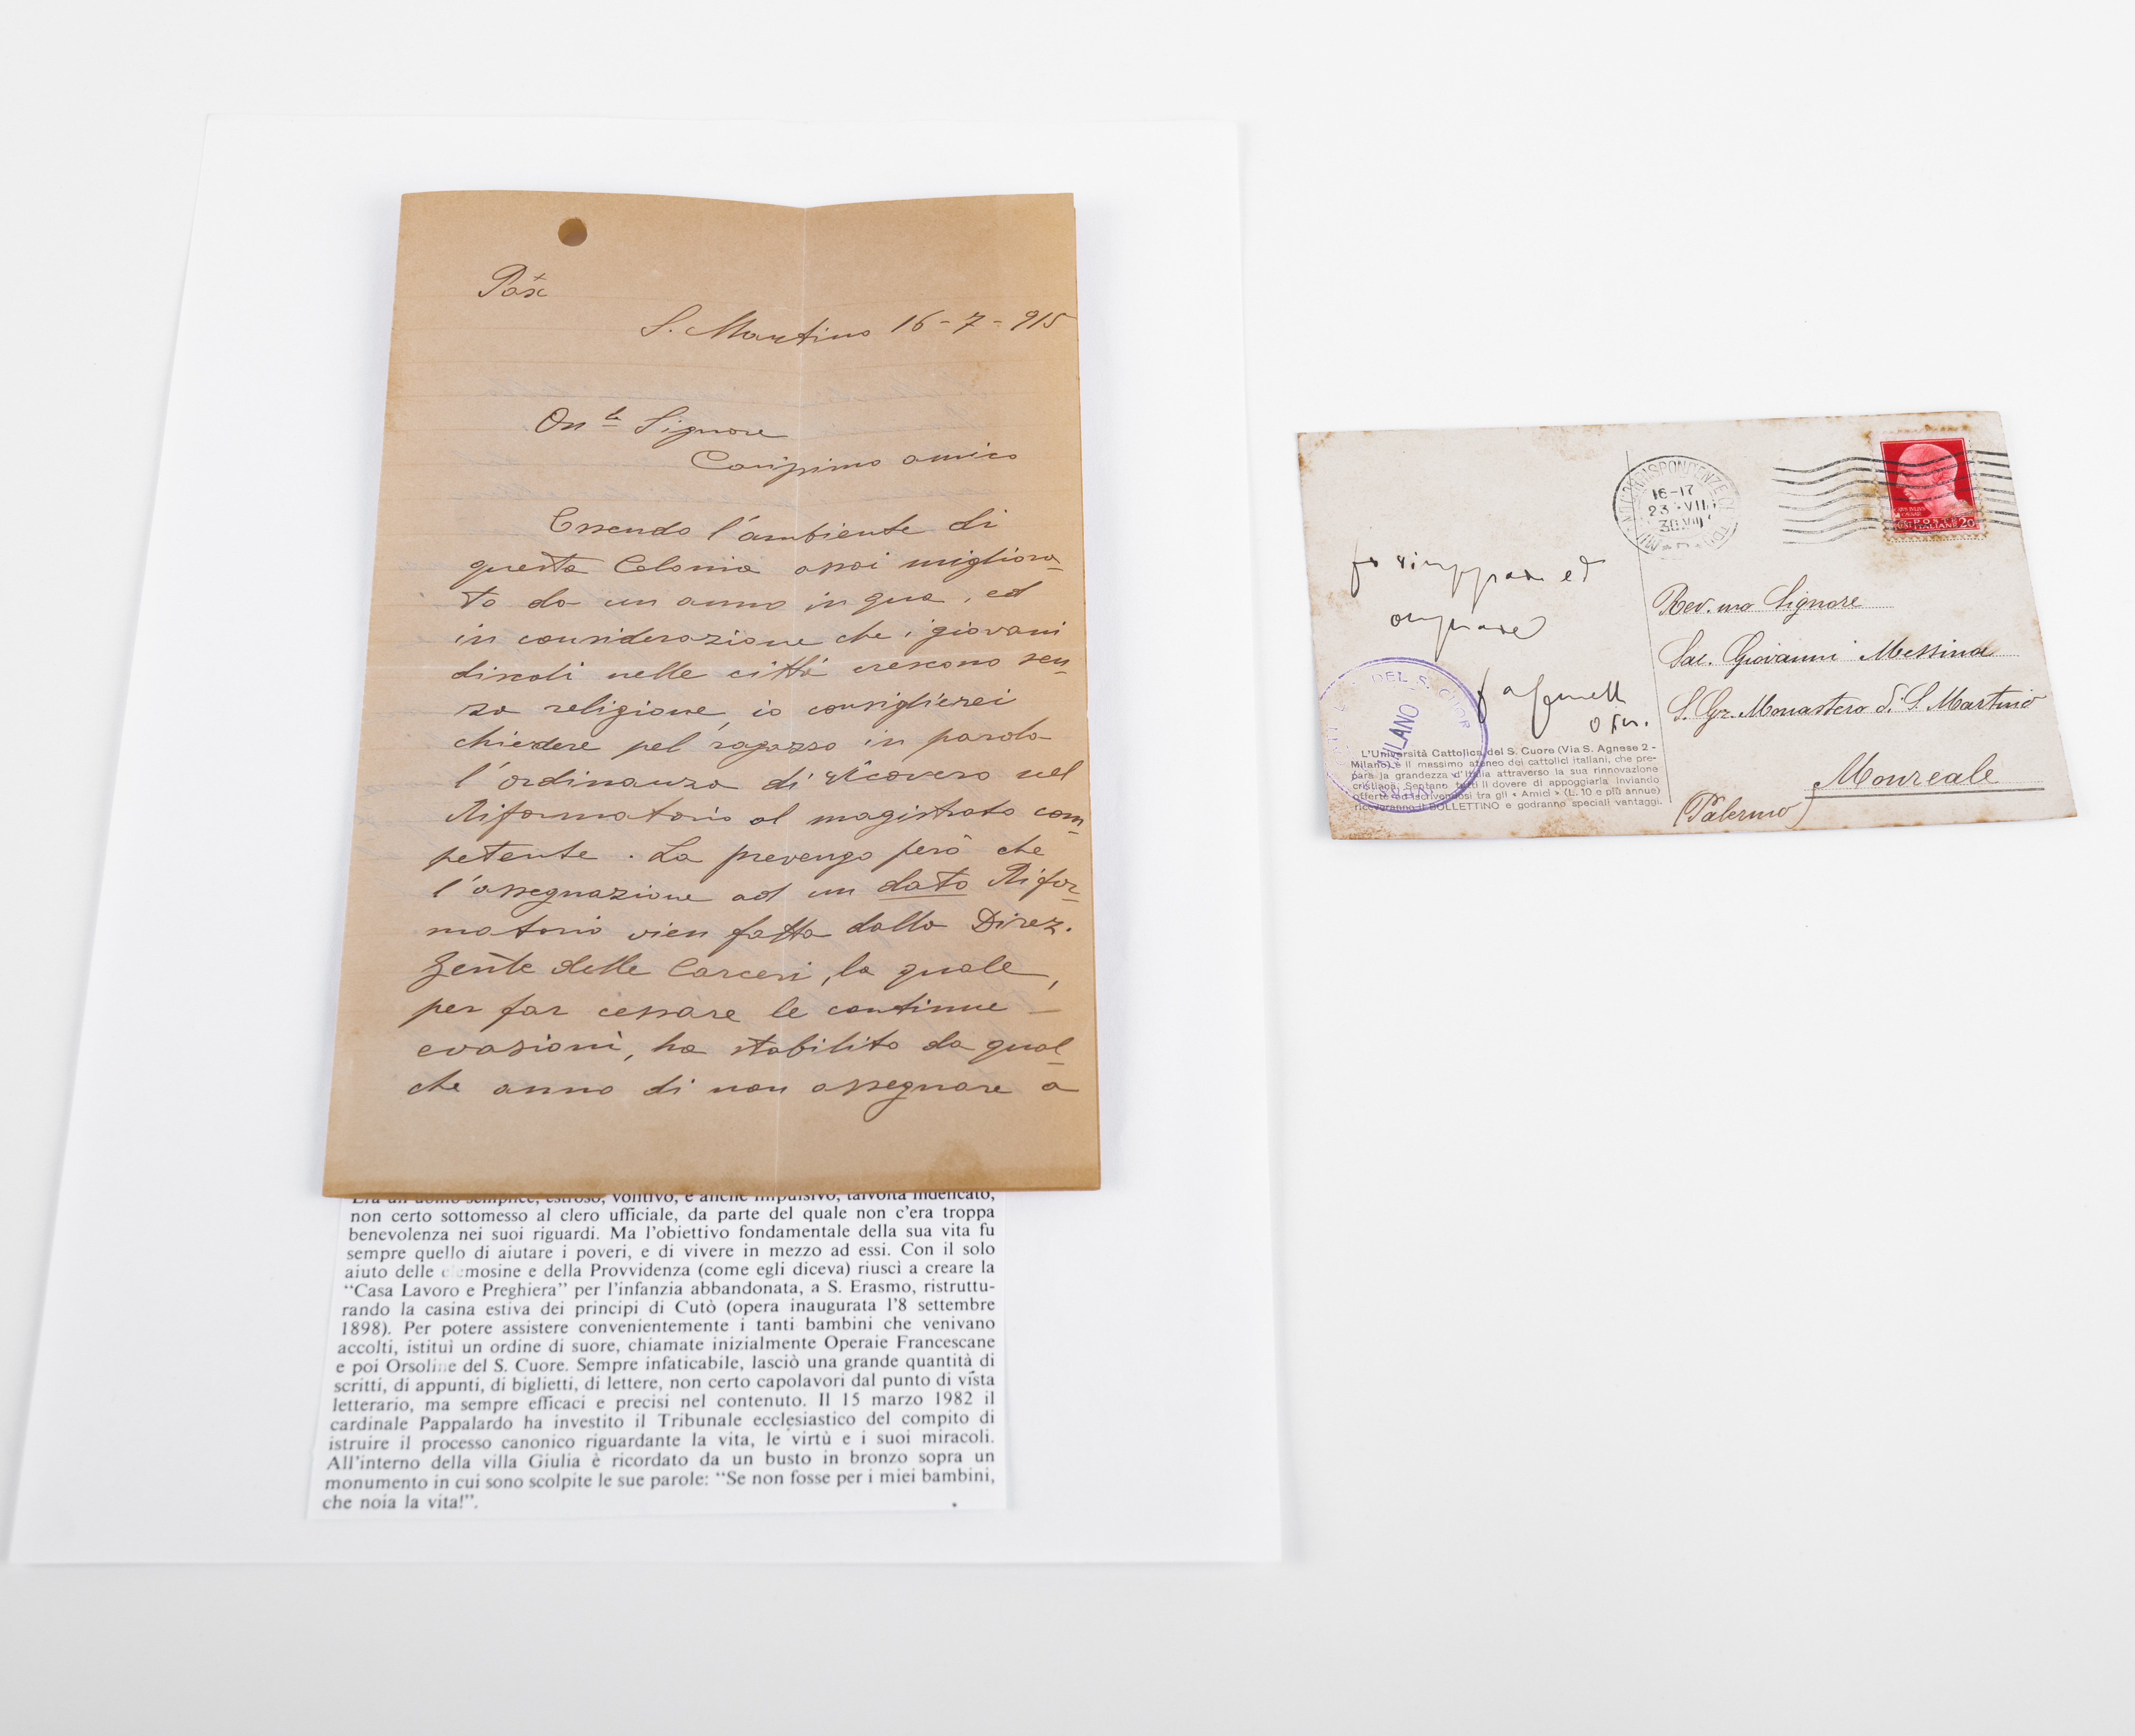 Pax
S. Martino 16-7-915
On.le Signore
Carissimo amico
Essendo l'ambiente di
questa Colonia assai migliora-
to da un anno in qua, ed
in considerazione che i giovani
discoli nelle città crescono sen-
za religione, io consiglierei
chiedere pel ragazzo in parola
l'ordinanza di ricovero nel
Riformatorio al magistrato com-
petente. La prevengo però che
l'assegnazione ad un dato Rifor-
matorio vien fatta dalla Direz.
Gen.le delle Carceri, la quale,
per far cessare le continue
evasioni, ha stabilito da qual-
che anno di non assegnare a
Era un uomo semplice, estroso, volitivo, e anche impulsivo, talvolta indelicato,
non certo sottomesso al clero ufficiale, da parte del quale non c'era troppa
benevolenza nei suoi riguardi. Ma l'obiettivo fondamentale della sua vita fu
sempre quello di aiutare i poveri, e di vivere in mezzo ad essi. Con il solo
aiuto delle elemosine e della Provvidenza (come egli diceva) riuscì a creare la
"Casa Lavoro e Preghiera" per l'infanzia abbandonata, a S. Erasmo, ristruttu-
rando la casina estiva dei principi di Cutò (opera inaugurata l'8 settembre
1898). Per potere assistere convenientemente i tanti bambini che venivano
accolti, istituì un ordine di suore, chiamate inizialmente Operaie Francescane
e poi Orsoline del S. Cuore. Sempre infaticabile, lasciò una grande quantità di
scritti, di appunti, di biglietti, di lettere, non certo capolavori dal punto di vista
letterario, ma sempre efficaci e precisi nel contenuto. Il 15 marzo 1982 il
cardinale Pappalardo ha investito il Tribunale ecclesiastico del compito di
istruire il processo canonico riguardante la vita, le virtù e i suoi miracoli.
All'interno della villa Giulia è ricordato da un busto in bronzo sopra un
monumento in cui sono scolpite le sue parole: "Se non fosse per i miei bambini,
che noia la vita!".
16-17
23 VII
30 VIII
POSTE
ITALIANE 20
ed
DEL S. CUOR
MILANO
L'Università Cattolica del S. Cuore (Via S. Agnese 2 -
Milano) è il massimo ateneo dei cattolici italiani, che pre-
para la grandezza d'Italia attraverso la sua rinnovazione
cristiana. Sentano tutti il dovere di appoggiarla inviando
offerte ed iscrivendosi tra gli « Amici » (L. 10 e più annue)
riceveranno il BOLLETTINO e godranno speciali vantaggi.
Rev.mo Signore
Sac. Giovanni Messina
S. Gr. Monastero d. S. Martino
Monreale
(Palermo)